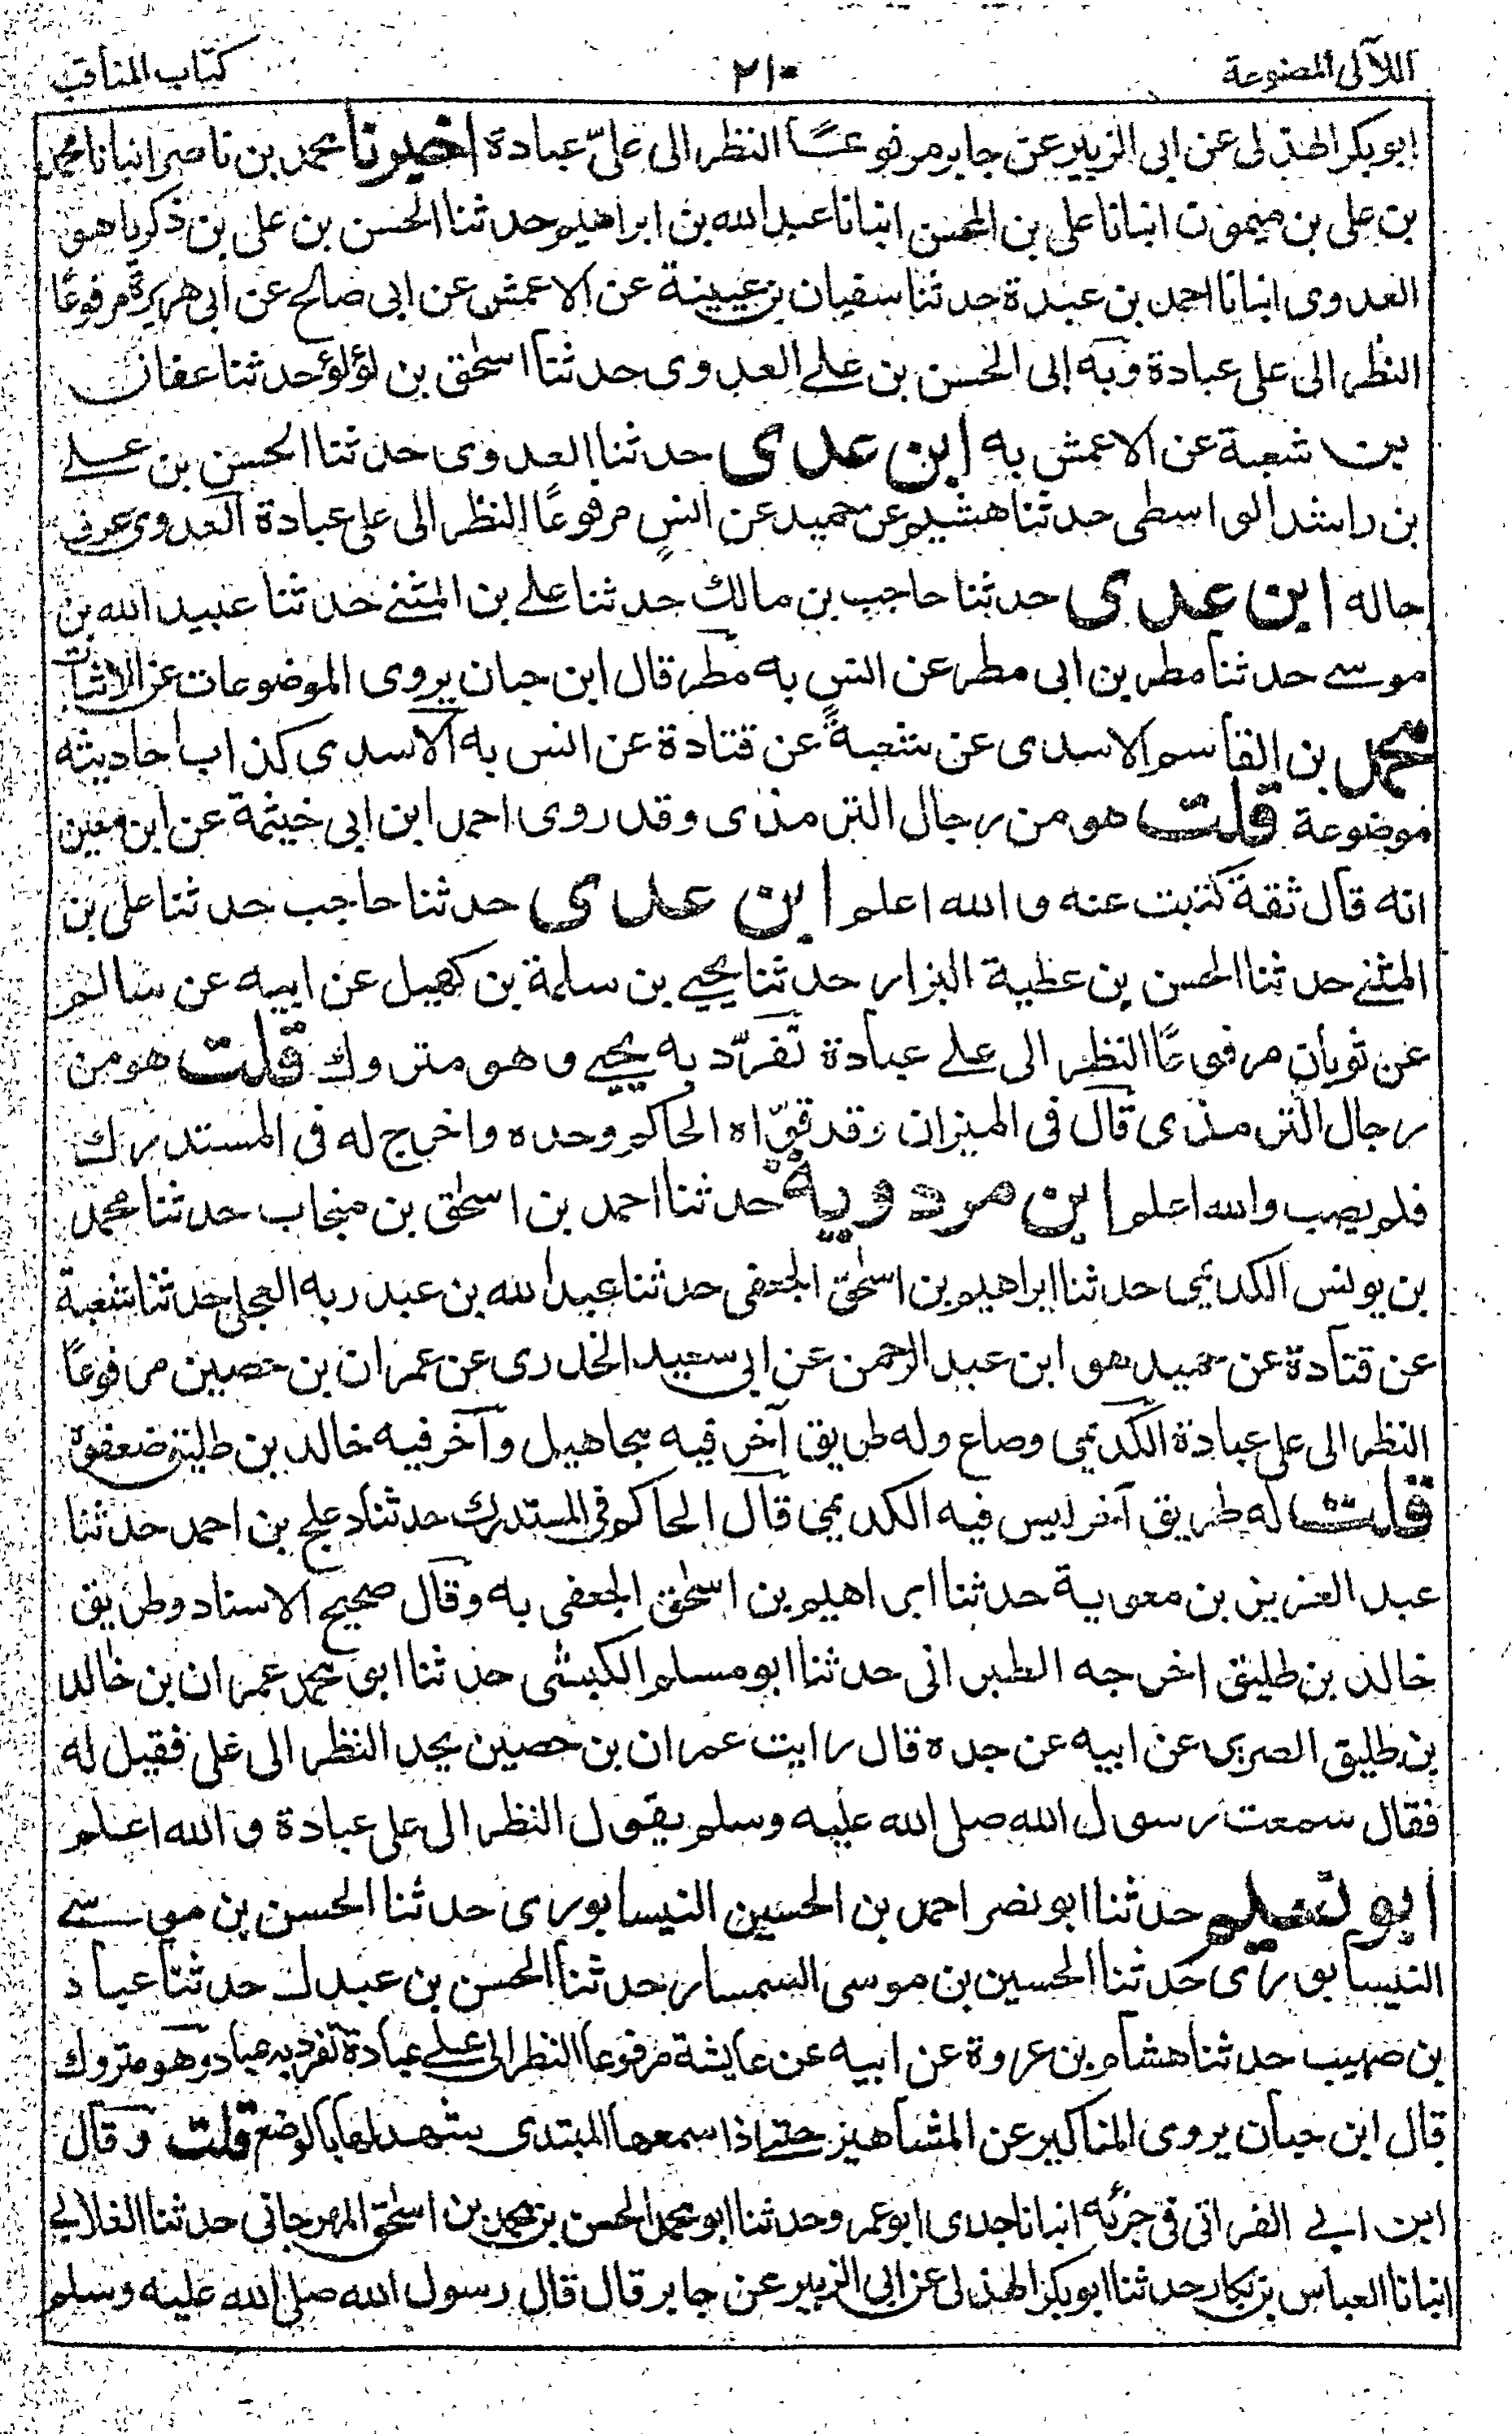 اللآلى المصنوعة
٢١٠
كتاب المناقب
ابو بكر الهذلى عن ابى الزبير عن جابر مرفوعًا النظر الى علىّ عبادة اخبرنا محمد بن ناصر انبانا محمد
بن على بن ميمون انبانا على بن المحسن انبانا عبد الله بن ابراهيم حدثنا الحسن بن على بن ذكريا هو
العدوى انبانا احمد بن عبدة حدثنا سفيان بن عيينة عن الاعمش عن ابى صالح عن ابى هريرة مرفوعًا
النظر الى على عبادة وبه إلى الحسن بن على العدوى حدثنا اسحٰق بن لؤلؤ حدثنا عفان
شعبة عن الاعمش به ابن عدى حدثنا العدوى حدثنا الحسن بن على
بن راشد الواسطى حدثنا هشيم عن حميد عن انس مرفوعًا النظر الى على عبادة العدوى عرف
حاله ابن عدى حدثنا حاجب بن مالك حدثنا على بن المثنى حدثنا عبيد الله بن
موسى حدثنا مطر بن ابى مطر عن انس به مطر قال ابن حبان يروى الموضوعات عن الاثبات
محمد بن القاسم الاسدى عن شعبة عن قتادة عن انس به الاسدى كذاب احاديثه
موضوعة قلت هو من رجال الترمذى وقد روى احمد ابن ابى خيثمة عن ابن معين
انه قال ثقة كتبت عنه والله اعلم ابن عدى حدثنا حاجب حدثنا على بن
المثنى حدثنا الحسن بن عطية البزار حدثنا يحيى بن سلمة بن كهيل عن ابيه عن سالم
عن ثوبان مرفوعًا النظر الى على عبادة تفرّد به يحيى وهو متروك قلت هو من
رجال الترمذى قال فى الميزان وقد قوّاه الحاكم وحده واخرج له فى المستدرك
فلم يصب والله اعلم ابن مردوية حدثنا احمد بن اسحٰق بن منجاب حدثنا محمد
بن يونس الكديمى حدثنا ابراهيم بن اسحٰق الجعفى حدثنا عبد الله بن عبد ربه العجلى حدثنا شعبة
عن قتادة عن حميد هو ابن عبد الرحمن عن ابى سعيد الخدرى عن عمران بن حصين مرفوعًا
النظر الى على عبادة الكديمى وضاع وله طريق آخر فيه مجاهيل وآخر فيه خالد بن طليق ضعفوه
قلت له طريق آخر ليس فيه الكديمى قال الحاكم فى المستدرك حدثنا دعلج بن احمد حدثنا
عبد العزيز بن معوية حدثنا ابراهيم بن اسحٰق الجعفى به وقال صحيح الاسناد وطريق
خالد بن طليق اخرجه الطبرانى حدثنا ابو مسلم الكبشى حدثنا ابو محمد عمران بن خالد
بن طليق الصربى عن ابيه عن جده قال رايت عمران بن حصين يحد النظر الى على فقيل له
فقال سمعت رسول الله صلى الله عليه وسلم يقول النظر الى على عبادة والله اعلم
ابو نعيم حدثنا ابو نصر احمد بن الحسين النيسابورى حدثنا الحسن بن موسى
النيسابورى حدثنا الحسين بن موسى السمسار حدثنا الحسن بن عبدك حدثنا عباد
بن صهيب حدثنا هشام بن عروة عن ابيه عن عايشة مرفوعا النظر الى على عبادة تفرد به عباد وهو متروك
قال ابن حبان يروى المناكير عن المشاهير حتى اذا سمعها المبتدى شهد لها بالوضع قلت وقال
ابن ابى الفراتى فى جزئه انبانا جدى ابو عمر وحدثنا ابو محمد الحسن بن محمد بن اسحٰق المهرجانى حدثنا الغلابى
انبانا العباس بن بكار حدثنا ابو بكر الهذلى عن ابى الزبير عن جابر قال قال رسول الله صلى الله عليه وسلم